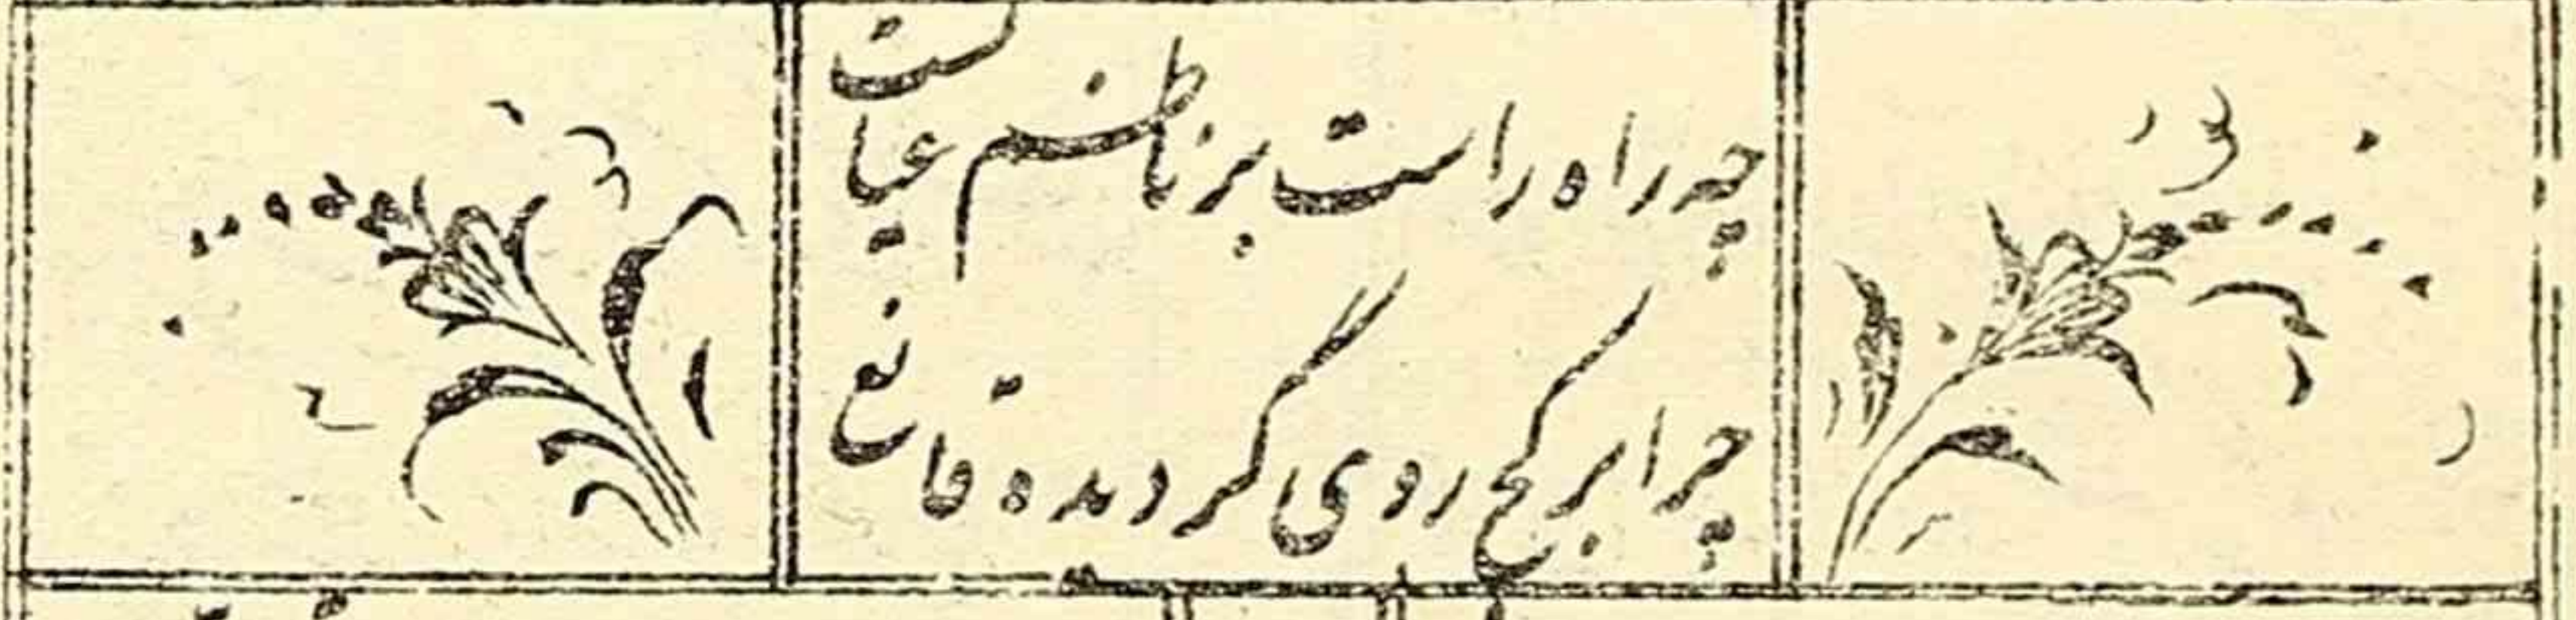 چه راه راست بر ناظم عیانست
چرا بر کج روی گردیده قانع